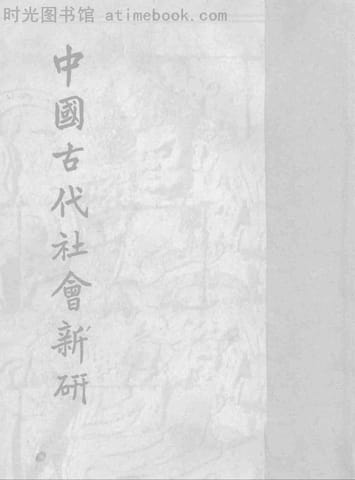 时光图书馆 atimebook.com
中國古代社會新研